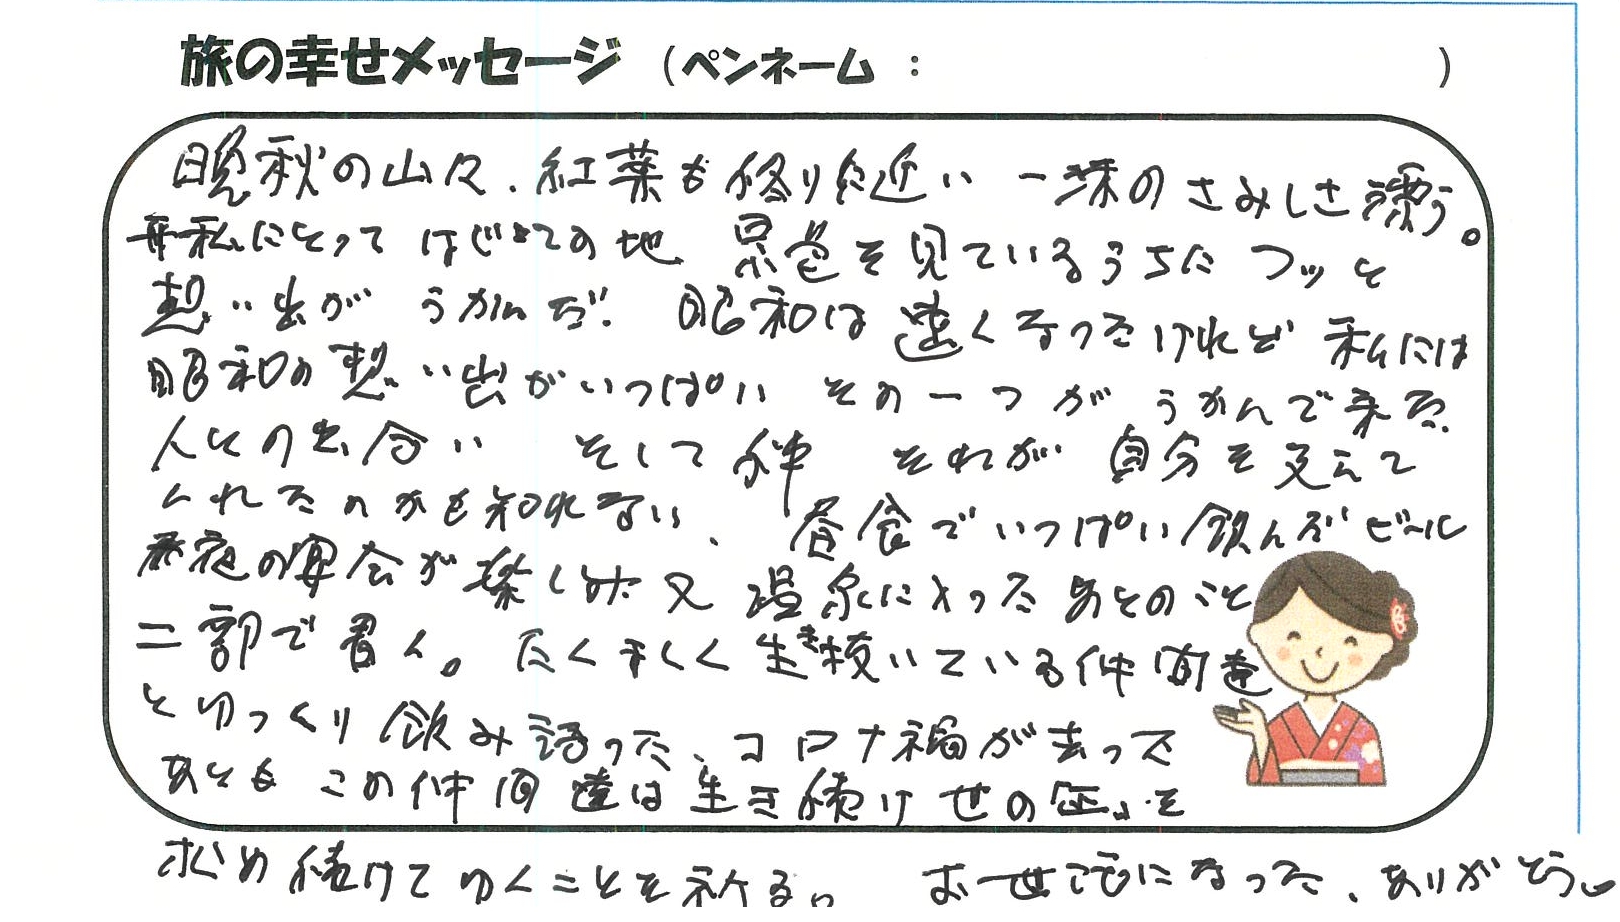 旅の幸せメッセージ (ペンネーム : )
晩秋の山々、紅葉も終りに近い 一抹のさみしさ漂う。
私にとって はじめての地 景色を見ているうちに フッと
想い出が うかんだ。 昭和は遠くなったけれど 私には
昭和の想い出がいっぱい その一つが うかんで来た
人との出会い そして仲 それが 自分を支えて
くれたのかも知れない、 昼食でいっぱい飲んだビール
夜の宴会が楽しみだ 又 温泉に入ったあとのこと
二部で書く。 たくましく 生き抜いている仲間達
とゆっくり飲み語った、コロナ禍が去って
あとも この仲間達は生き続け 世の 正しいを
求め続けてゆくことを祈る。 お世話になった、ありがとう。